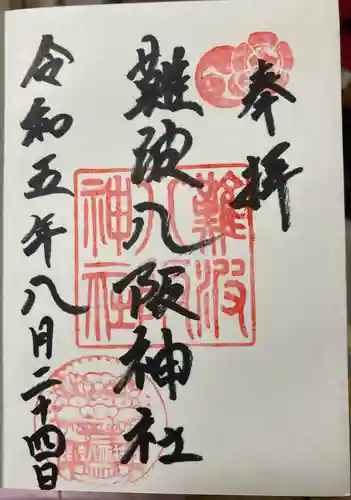 奉拝
難波八阪神社
令和五年八月二十四日
難波
八阪
神社